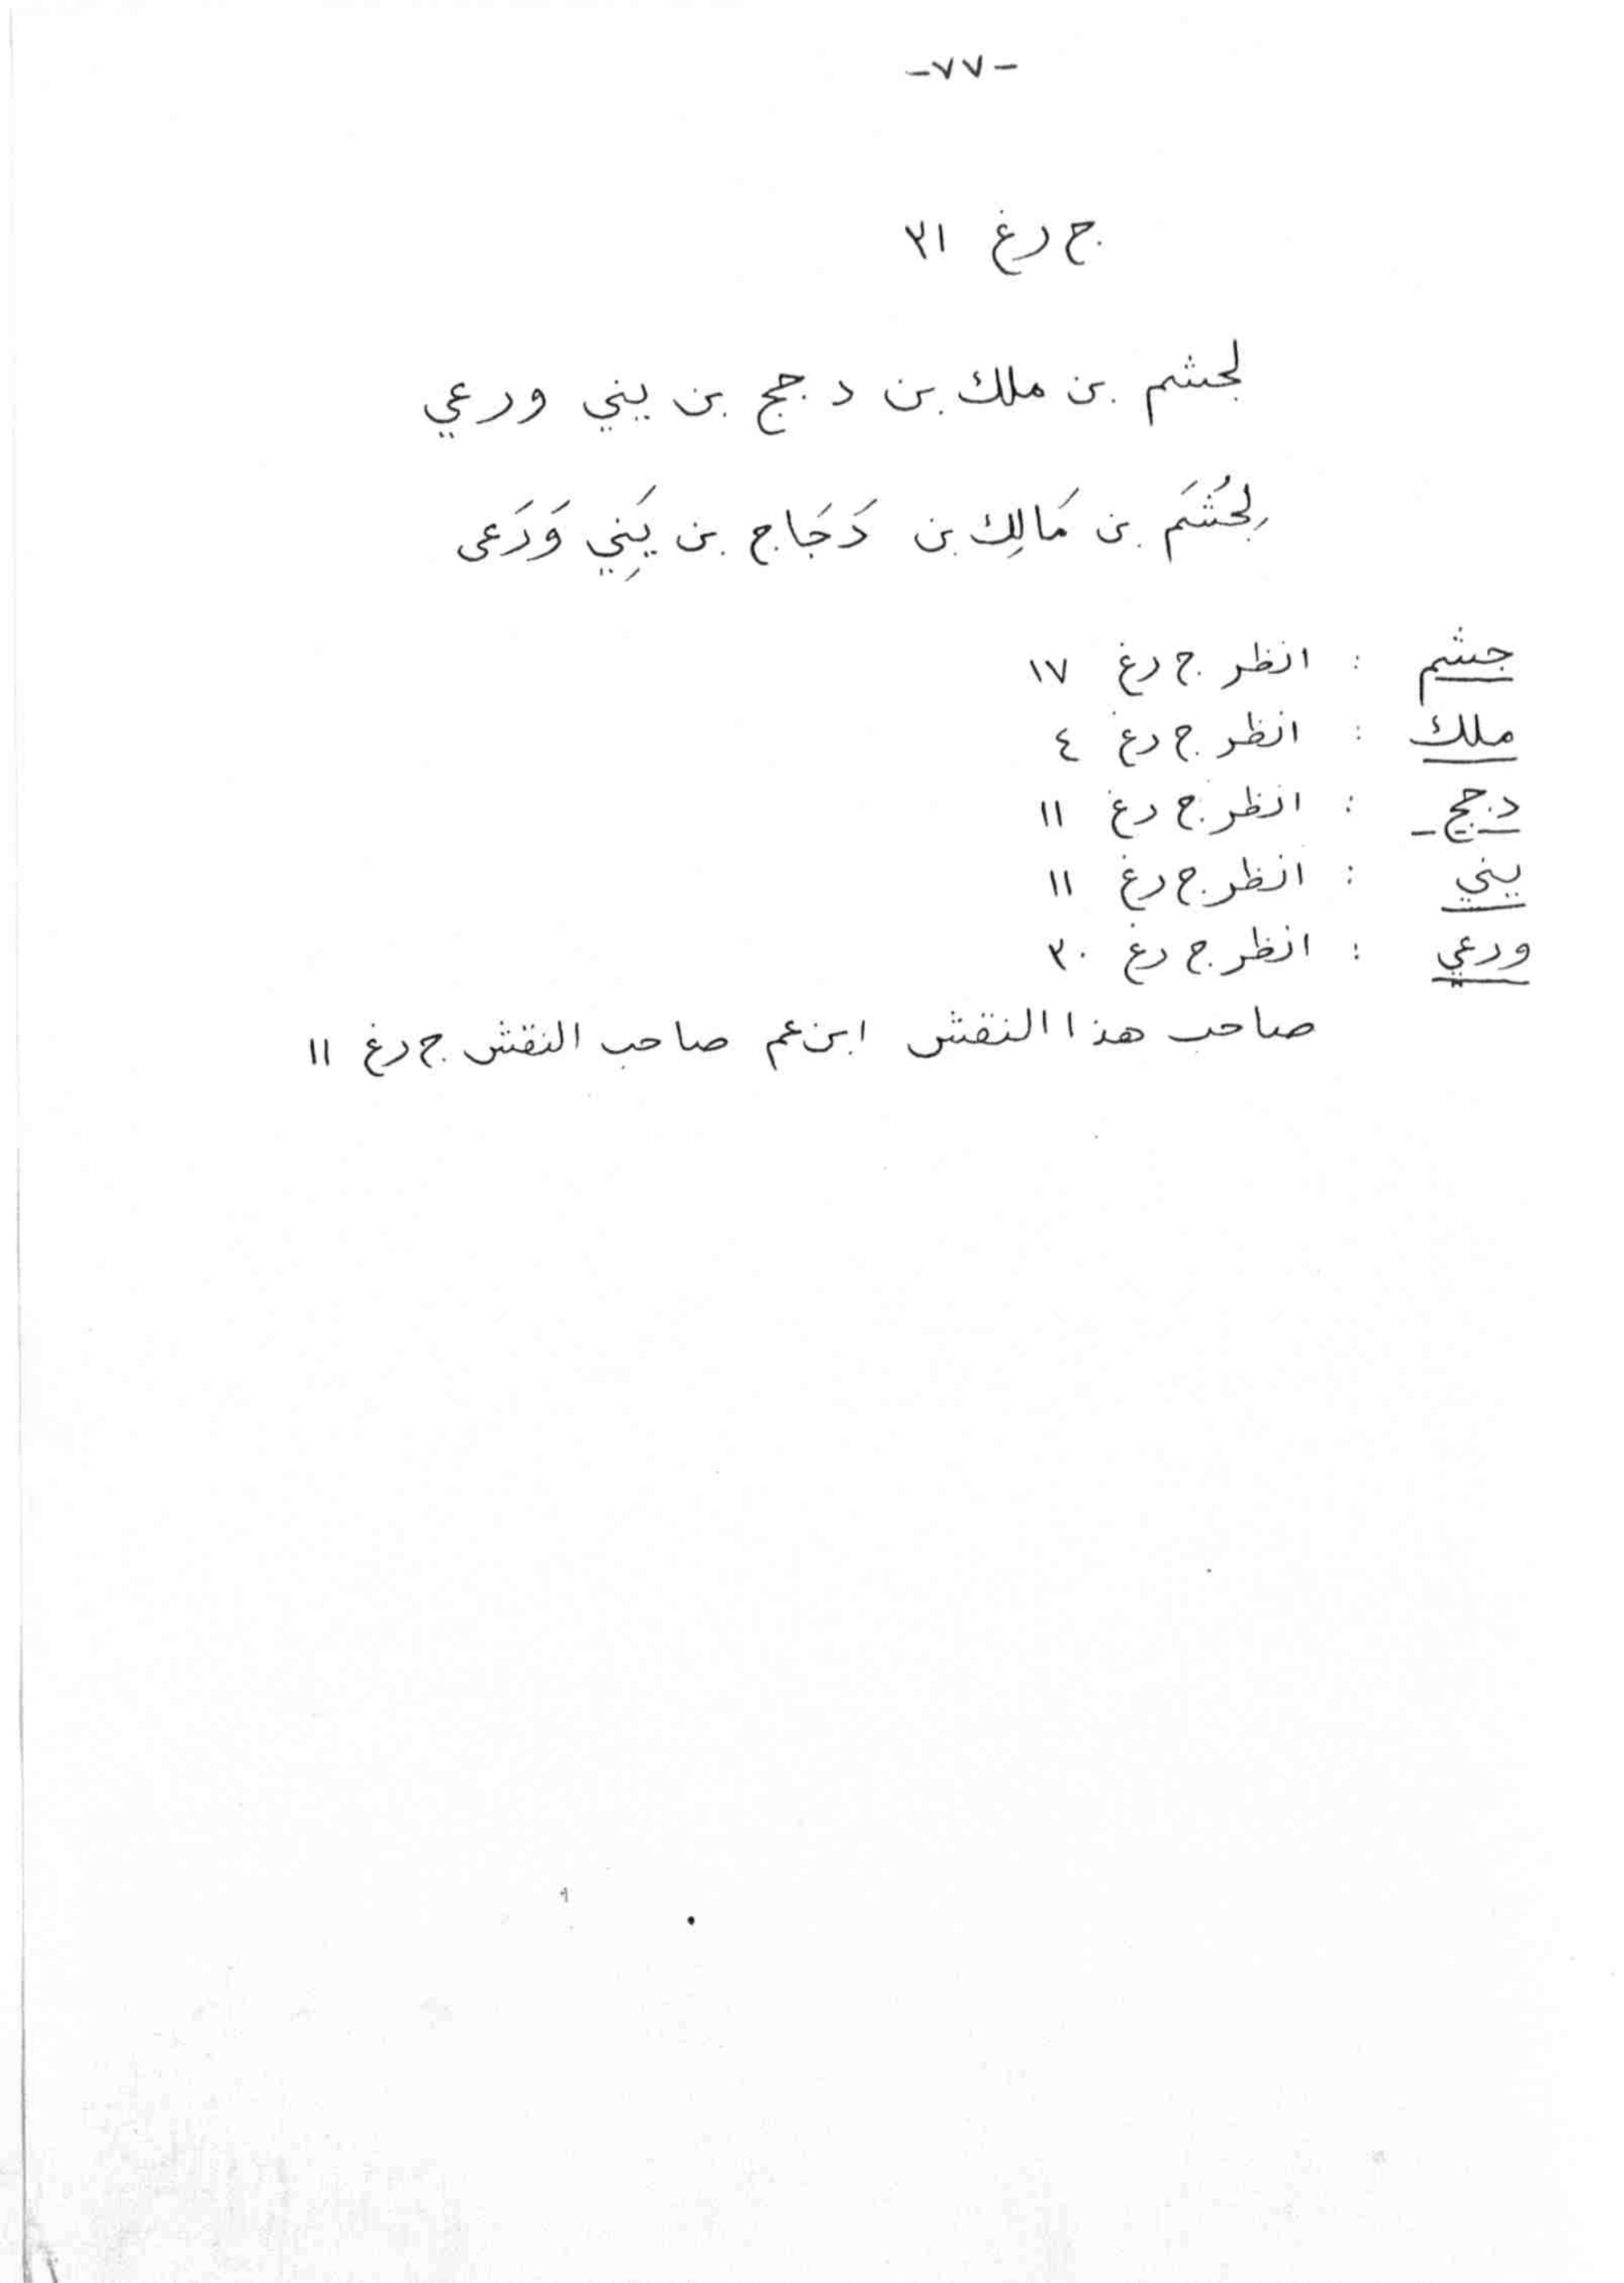 -٧٧-
ج رغ ٣١
لجشم بن ملك بن دجج بن يني ورعي
لِجُشَم بن مَالِك بن دَجَاج بن يَنِي وَرَعى
جشم : انظر ج رغ ١٧
ملك : انظر ج رغ ٤
دجج : انظر ج رغ ١١
يني : انظر ج رغ ١١
ورعي : انظر ج رغ ٣٠
صاحب هذا النقش ابن عم صاحب النقش ج رغ ١١